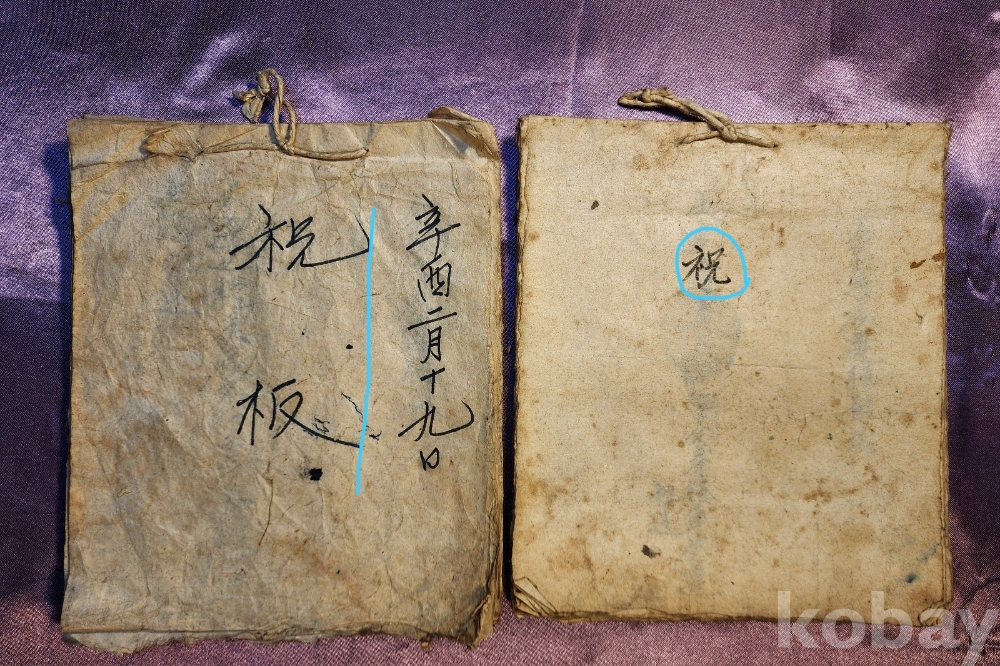 辛酉二月十九日
祝板
祝
kobay